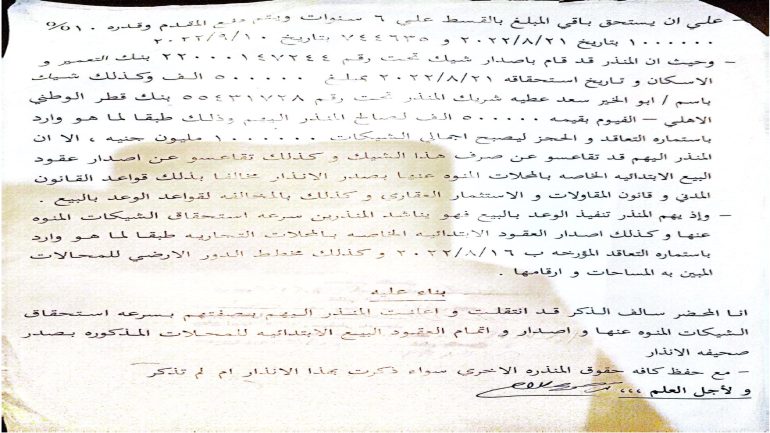 - علي ان يستحق باقي المبلغ بالقسط علي ٦ سنوات ويتم دفع المقدم وقدره ٥١٠%
١٠٠٠٠٠٠ بتاريخ ٢٠٢٢/٨/٢١ و ٧٤٤٦٣٥ بتاريخ ٢٠٢٢/٩/١٠
- وحيث ان المنذر قد قام باصدار شيك تحت رقم ٢٢٠٠٠١٤٧٢٤٤ بنك التعمير و
الاسكان و تاريخ استحقاقه ٢٠٢٢/٨/٢١ بمبلغ ٥٠٠٠٠٠ الف وكذلك شيك
باسم / ابو الخير سعد عطيه شريك المنذر تحت رقم ٥٥٤٣١٧٢٨ بنك قطر الوطني
الاهلي – الفيوم بقيمه ٥٠٠٠٠٠ الف لصالح المنذر اليهم وذلك طبقا لما هو وارد
باستماره التعاقد و الحجز ليصبح اجمالي الشيكات ١٠٠٠٠٠٠ مليون جنيه ، الا ان
المنذر اليهم قد تقاعسو عن صرف هذا الشيك و كذلك تقاعسو عن اصدار عقود
البيع الابتدائيه الخاصه بالمحلات المنوه عنها بصدر الانذار مخالفا بذلك قواعد القانون
المدني و قانون المقاولات و الاستثمار العقاري و كذلك بالمخالفه لقواعد الوعد بالبيع .
- وإذ يهم المنذر تنفيذ الوعد بالبيع فهو يناشد المنذرين سرعه استحقاق الشيكات المنوه
عنها و كذلك اصدار العقود الابتدائيه الخاصه بالمحلات التجاريه طبقا لما هو وارد
باستماره التعاقد المؤرخه ب ٢٠٢٢/٨/١٦ و كذلك مخطط الدور الارضي للمحالات
المبين به المساحات و ارقامها .
بناء عليه
انا المحضر سالف الذكر قد انتقلت و اعلنت المنذر اليهم بصفتهم بسرعه استحقاق
الشيكات المنوه عنها و اصدار و اتمام العقود البيع الابتدائيه للمحلات المذكوره بصدر
صحيفه الانذار
- مع حفظ كافه حقوق المنذره الاخرى سواء ذكرت بهذا الانذار ام لم تذكر
و لأجل العلم ،،،